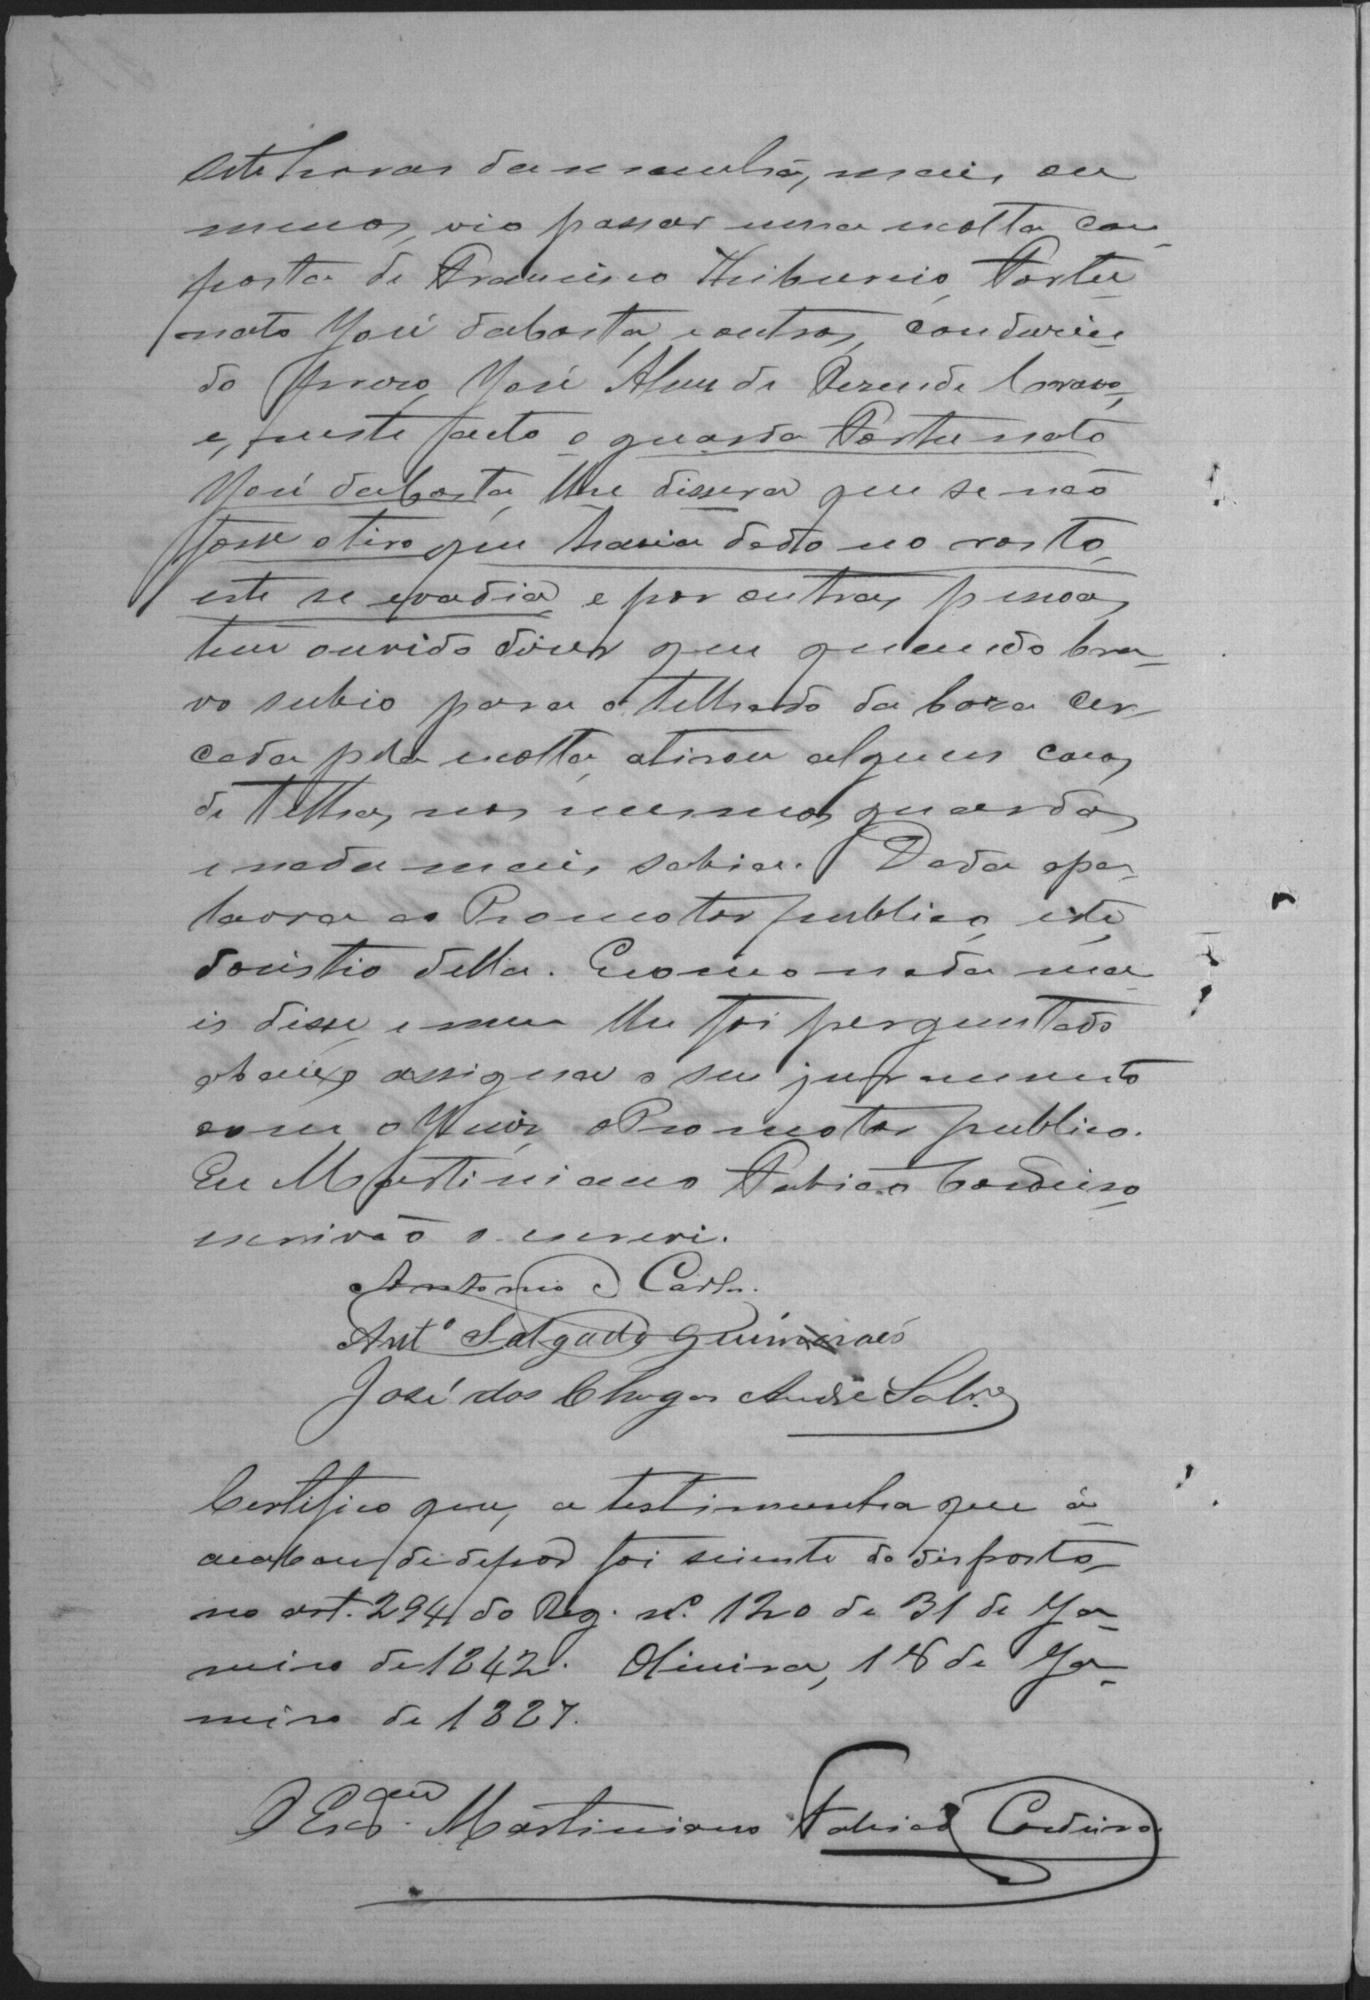 sete horas da manhã, mais ou
menos, vio passar uma escolta com-
posta de Francisco Thiburcio, Fortu-
nato José da Costa, e outros, conduzin-
do preso José Alves de Rezende Bravo,
e, neste facto o guarda Fortunato
José da Costa, lhe dissera que se não
fosse o tiro que havia dado no rosto,
este se evadia, e por outras pessoas
tem ouvido dizer que quando Bra-
vo subio para o telhado da casa cer-
cada pela escolta, atirou alguns cacos
de telhas, nos mesmos guardas
e nada mais sabia. Dada a pa-
lavra ao Promotor publico, este
desistio della. E como nada ma-
is disse, e nem lhe foi perguntado
abaixo assigna o seu juramento
com o Juiz, o Promotor publico.
Eu Martiniano Fabião Cordeiro
escrivão o escrevi.
Antonio Carlos
Ant.º Salgado Guimaraes
José das Chagas Andrade
Certifico que, a testimunha que a-
acabou de depor foi sciente do disposto,
no art. 294 do Reg. n.º 120 de 31 de Ja-
neiro de 1842. Oliveira, 18 de Ja-
neiro de 1887.
O Escr.am Martiniano Fabião Cordeiro